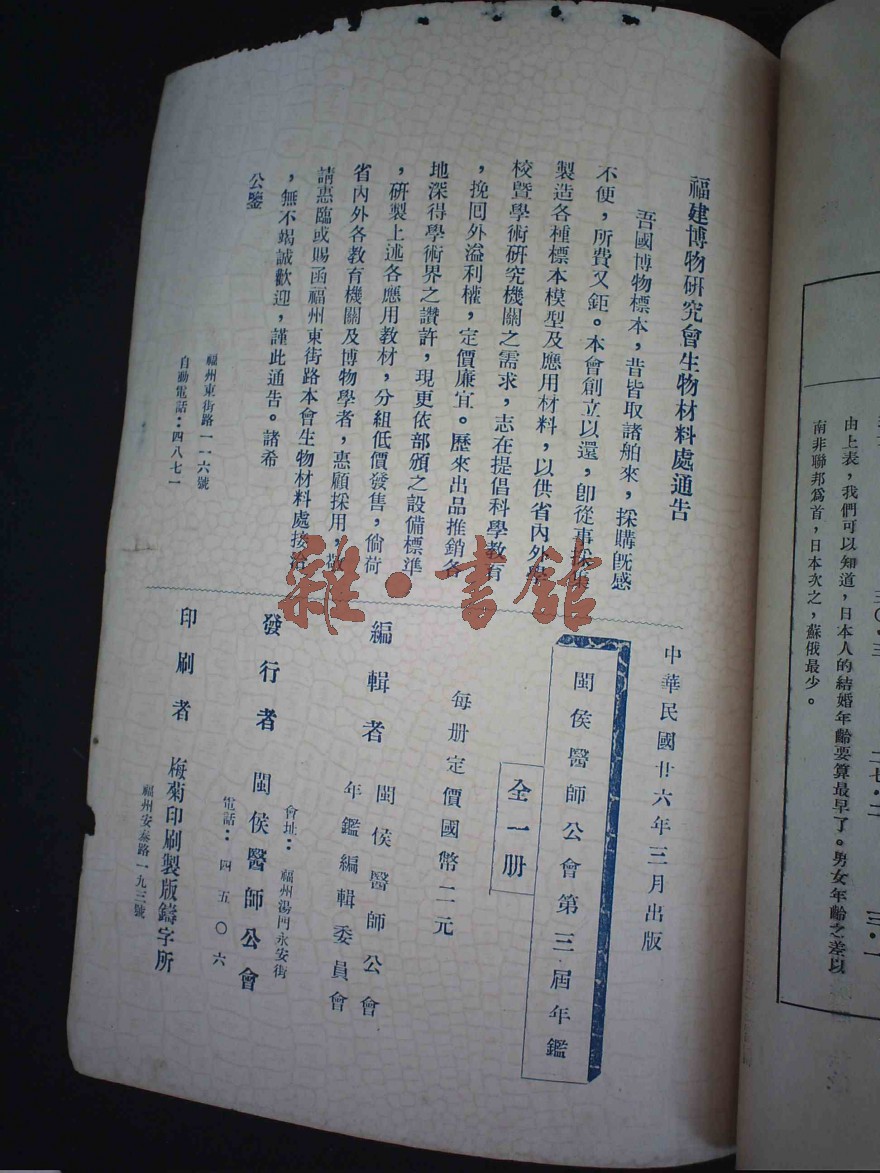 由上表，我們可以知道，日本人的結婚年齡要算最早了。男女年齡之差以
南非聯邦爲首，日本次之，蘇俄最少。
福建博物研究會生物材料處通告
吾國博物標本，昔皆取諸舶來，採購旣感
不便，所費又鉅。本會創立以還，卽從事採集
製造各種標本模型及應用材料，以供省內外學
校曁學術研究機關之需求，志在提倡科學教育
，挽囘外溢利權，定價廉宜。歷來出品推銷各
地深得學術界之讚許，現更依部頒之設備標準
，硏製上述各應用教材，分組低價發售，倘荷
省內外各教育機關及博物學者，惠顧採用，敬
請惠臨或賜函福州東街路本會生物材料處接洽
，無不竭誠歡迎，謹此通告。諸希
公鑒
福州東街路一一六號
自動電話：四八七一
中華民國廿六年三月出版
閩侯醫師公會第三屆年鑑
全一册
每册定價國幣二元
編輯者
閩侯醫師公會
年鑑編輯委員會
會址：福州湯門永安街
發行者 閩侯醫師公會
電話：四五〇六
印刷者 梅菊印刷製版鑄字所
福州安泰路一九三號
雜·書館